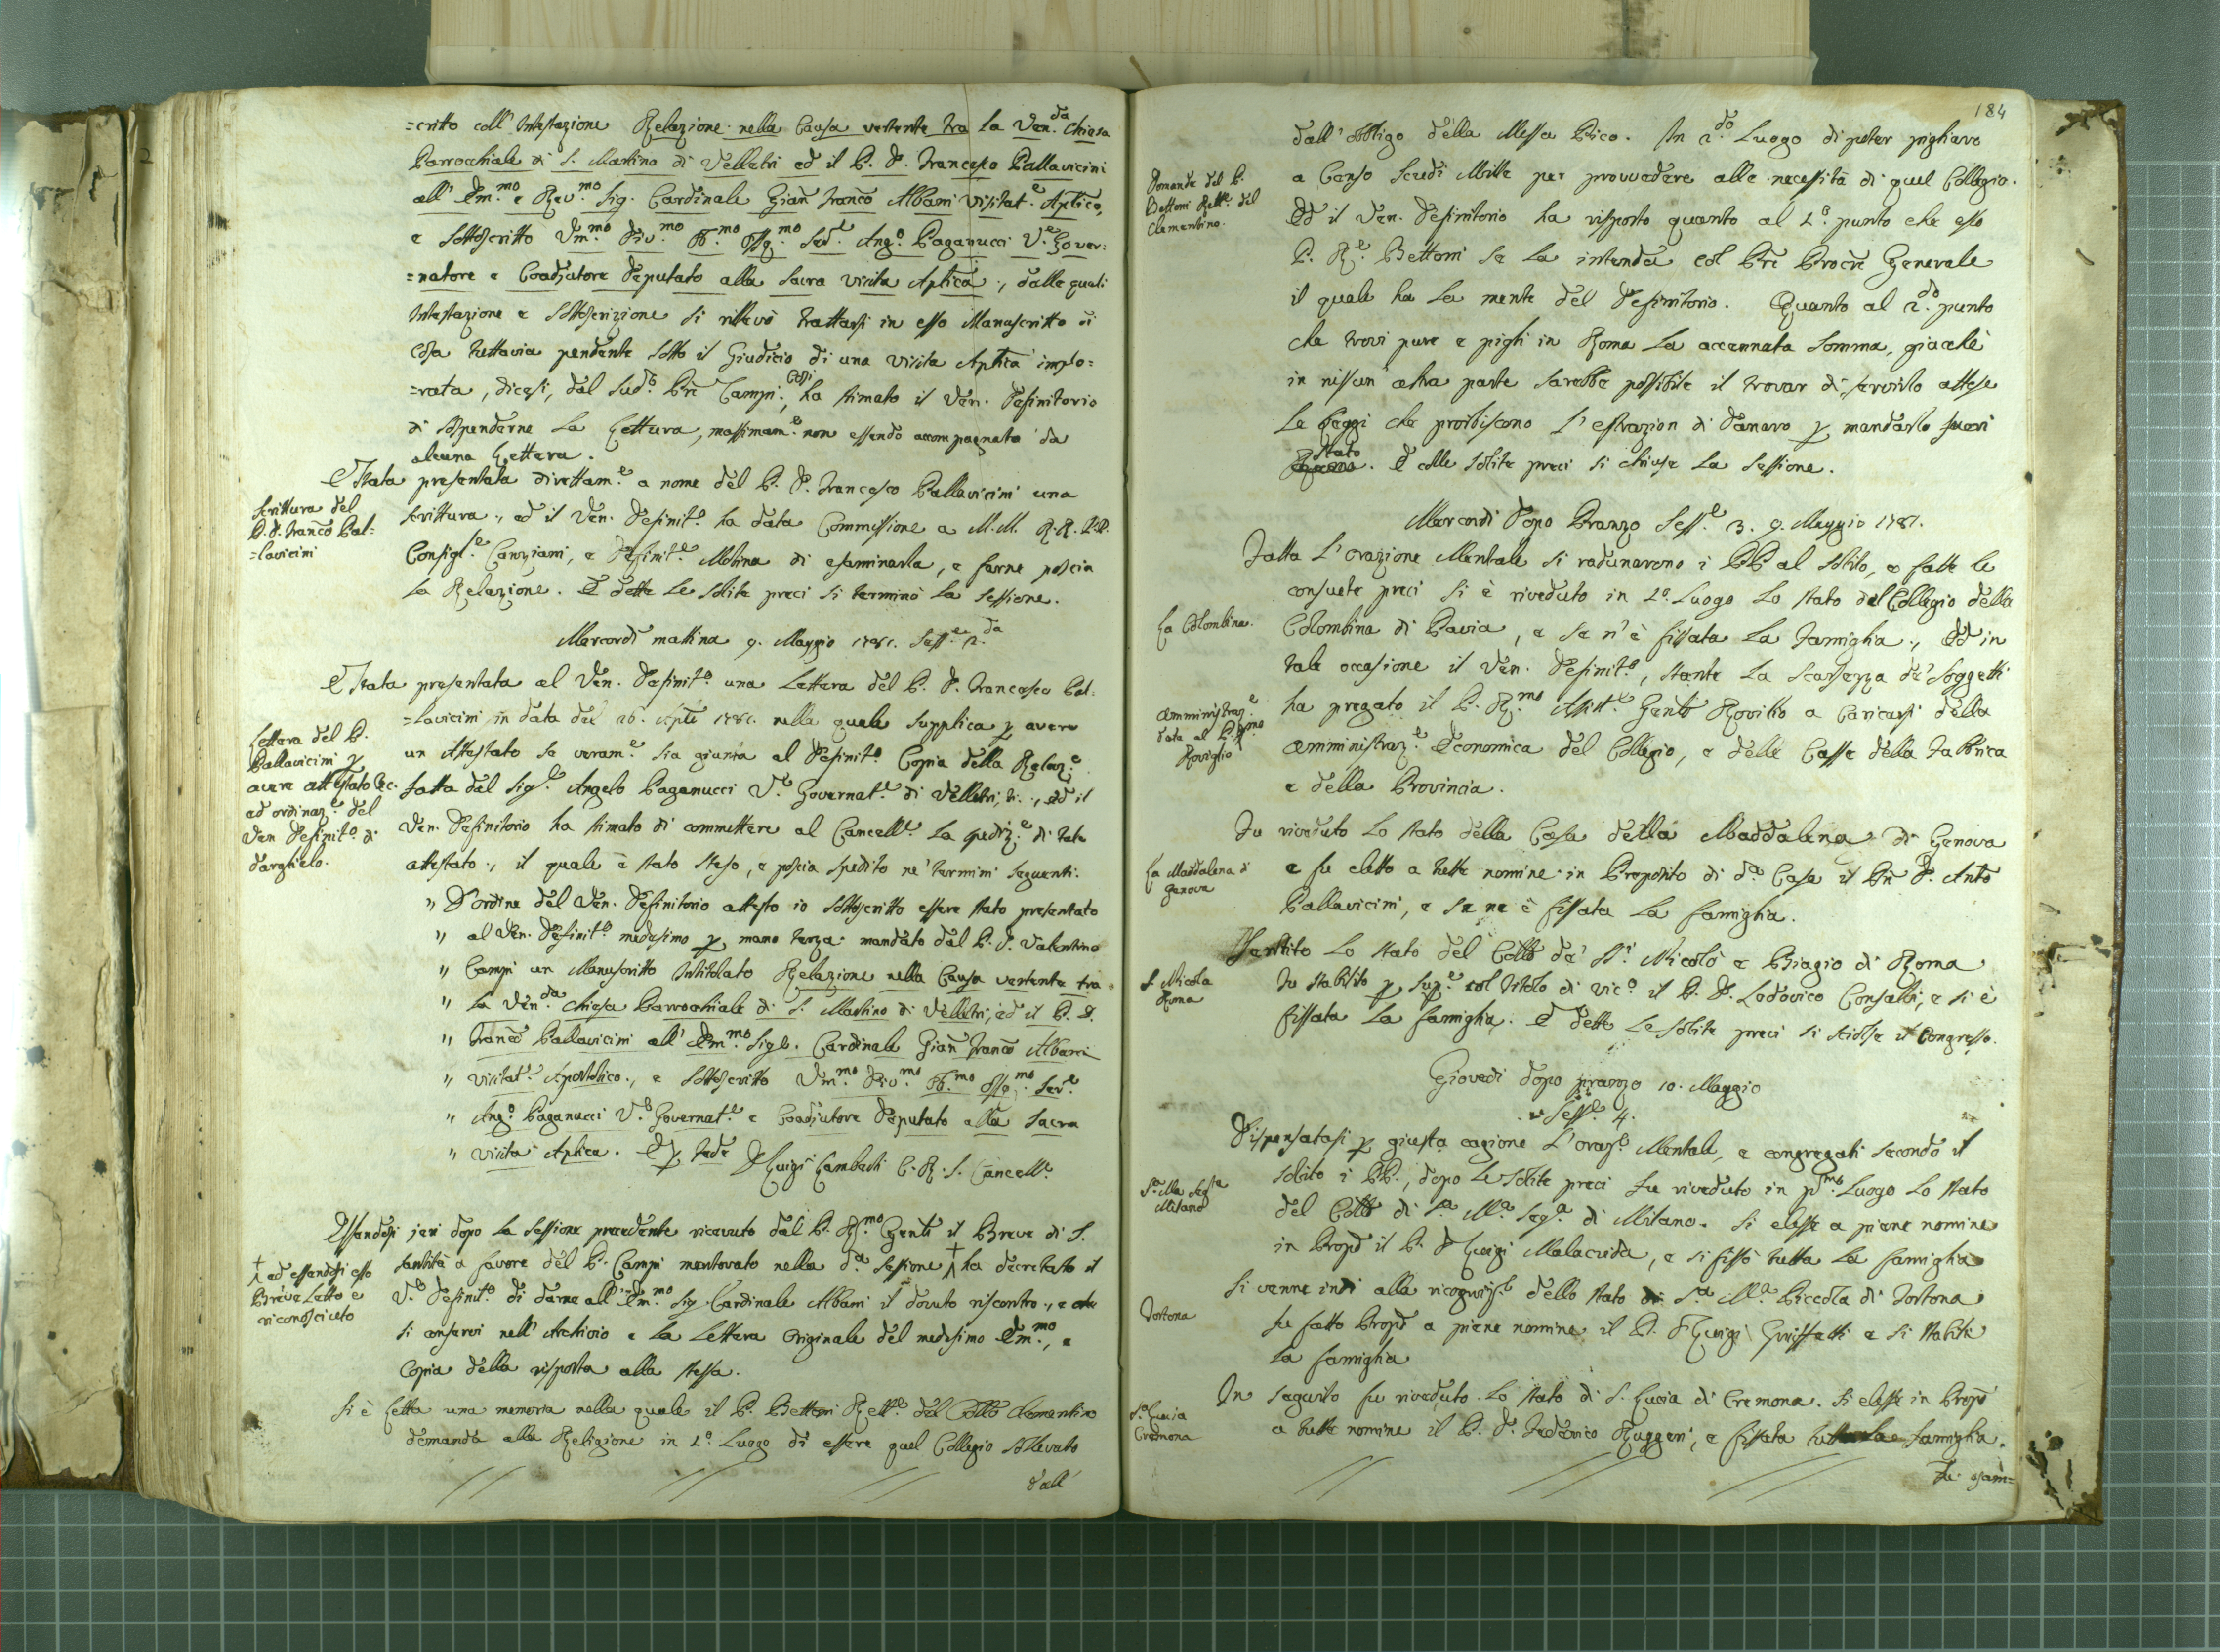 =critto coll' Intestazione Relazione nella Causa vertente tra la Ven.da Chiesa
Parrocchiale di S. Martino di Velletri ed il P. D. Francesco Pallavicini
all' Em.mo e Rev.mo Sig. Cardinale Gian Franco Albani Visitat.e Aptico,
e sottoscritto Um.mo Div.mo Ob.mo Ossq.mo Ser.e Ang.o Paganucci V.e Gover=
=natore e Coadjutore Deputato alla Sacra Visita Aptica, dalle quali
Intestazione e sottoscrizione si rilevò trattarsi in esso Manuscritto di
cosa tuttavia pendente sotto il Giudicio di una Visita Aptica implo=
=rata, dicesi, dal Sud.o Pre Campi, ha stimato il Ven. Definitorio
di sospenderne la Lettura, massimam.e non essendo accompagnato da
alcuna Lettera.
È Stata presentata direttam.e a nome del P. D. Francesco Pallavicini una
Scrittura del
P. D. Franco Pal=
=lavicini
scrittura, ed il Ven. Definit.o ha data Commissione a M.M. R.R. P.P.
Consigl.e Canziani, e Definit.e Molina di esaminarla, e farne poscia
la Relazione. E dette le solite preci si terminò la sessione.
Mercordì mattina 9. Maggio 1781. Sess.e 2.da
È Stata presentata al Ven. Definit.o una Lettera del P. D. Francesco Pal=
=lavicini in data del 26. Aple 1781. nella quale supplica p avere
Lettera del P.
Pallavicini p
avere attestato &c.
ad ordinaz.e del
Ven. Definit.o di
darglielo.
un Attestato se veram.e sia giunta al Definit.o Copia della Relaz.e
fatta dal Sig.e Angelo Paganucci V.e Governat.e di Velletri, ed il
Ven. Definitorio ha stimato di commettere al Cancell.e la spediz.e di tale
attestato, il quale è stato steso, e poscia spedito ne' termini seguenti.
" D'ordine del Ven. Definitorio attesto io sottoscritto essere stato presentato
" al Ven. Definit.o medesimo p mano terza mandato dal P. D. Valentino
" Campi un Manuscritto Intitolato Relazione nella Causa vertente tra
" la Ven.da Chiesa Parrocchiale di S. Martino di Velletri, ed il P. D.
" Franco Pallavicini all' Em.mo Sig.e Cardinale Gian Franco Albani
" Visitat.e Apostolico, e sottoscritto Um.mo Div.mo Ob.mo Ossq.mo Ser.e
" Ang.o Paganucci V.e Governat.e e Coadjutore Deputato alla Sacra
" Visita Aptica. E p fede D Luigi Lamberti C. R. S. Cancell.e
Essendosi jeri dopo la sessione precedente ricevuto dal P. R.mo Genti il Breve di S.
Santità a favore del P. Campi mentovato nella d.a sessione † ha decretato il
† ed essendosi esso
Breve Letto e
riconosciuto
V.e Definit.o di darne all' Em.mo Sig. Cardinale Albani il dovuto riscontro, e che
si conservi nell' Archivio e la Lettera Originale del medesimo Em.mo, e
Copia della risposta alla stessa.
Si è Letta una memoria nella quale il P. Bettoni Rett.e del Collo Clementino
domanda alla Religione in 1.o Luogo di essere quel Collegio sollevato
dall'
184
dall' obbligo della Messa Pico. In 2.do Luogo di poter pigliare
Domande del P.
Bettoni Rett.e del
Clementino.
a Censo Scudi Mille per provvedere alle necessità di quel Collegio.
Ed il Ven. Definitorio ha risposto quanto al 1.o punto che esso
P. R.e Bettoni se la intenda col Pre Procre Generale
il quale ha la mente del Definitorio. Quanto al 2.do punto
che trovi pure e pigli in Roma la accennata somma, giacchè
in nissun' altra parte sarebbe possibile il trovar di servirlo attese
Le Leggi che proibiscono l'estrazion di Danaro p mandarlo fuori
Stato. E colle solite preci si chiuse la sessione.
Mercordì dopo Pranzo Sess.e 3. 9. Maggio 1781.
Fatta l'orazione Mentale si radunarono i PP al solito, e fatte le
consuete preci si è riveduto in 1.o Luogo lo stato del Collegio della
La Colombina.
Colombina di Pavia, e se n'è fissata la Famiglia, Ed in
tale occasione il Ven. Definit.o, stante la scarsezza de' Soggetti
ha pregato il P. R.mo Assist.e Genle Rovilio a caricarsi della
Amministraz.e
data al P. R.mo
Roviglio
Amministraz.e Economica del Collegio, e delle Casse della Fabbrica
e della Provincia.
Fu riveduto lo stato della Casa della Maddalena di Genova
La Maddalena di
Genova
e fu eletto a tutte nomine in Preposito di d.a Casa il Pre D. Anto
Pallavicini, e se ne è fissata la famiglia.
Sentito lo stato del Collo de' SS. Nicolò e Biagio di Roma
S. Nicola
Roma
Fu stabilito p Sup.e col titolo di Vic.o il P. D. Lodovico Consalvi, e si è
fissata la famiglia. E dette le solite preci si sciolse il Congresso.
Giovedì dopo pranzo 10. Maggio
Sess.e 4.
Dispensatasi p giusta cagione l'oraz.e Mentale, e congregati secondo il
solito i PP., dopo le solite preci fu riveduto in p.mo Luogo lo stato
S.a Ma Seg.ta
Milano
del Collo di S.a M.a Seg.a di Milano. Si elesse a piene nomine
in Propo il P. D Luigi Malacrida, e si fissò tutta la famiglia
Si venne indi alla ricogniz.e dello stato di S.a M.a Piccola di Tortona
Tortona
fu fatto Propo a piene nomine il P. D Luigi Griffetti e si stabilì
la famiglia
In seguito fu riveduto lo stato di S. Lucia di Cremona. Si elesse in Propo
S.a Lucia
Cremona
a tutte nomine il P. D. Federico Ruggeri, e fissata la famiglia.
Fu esam=